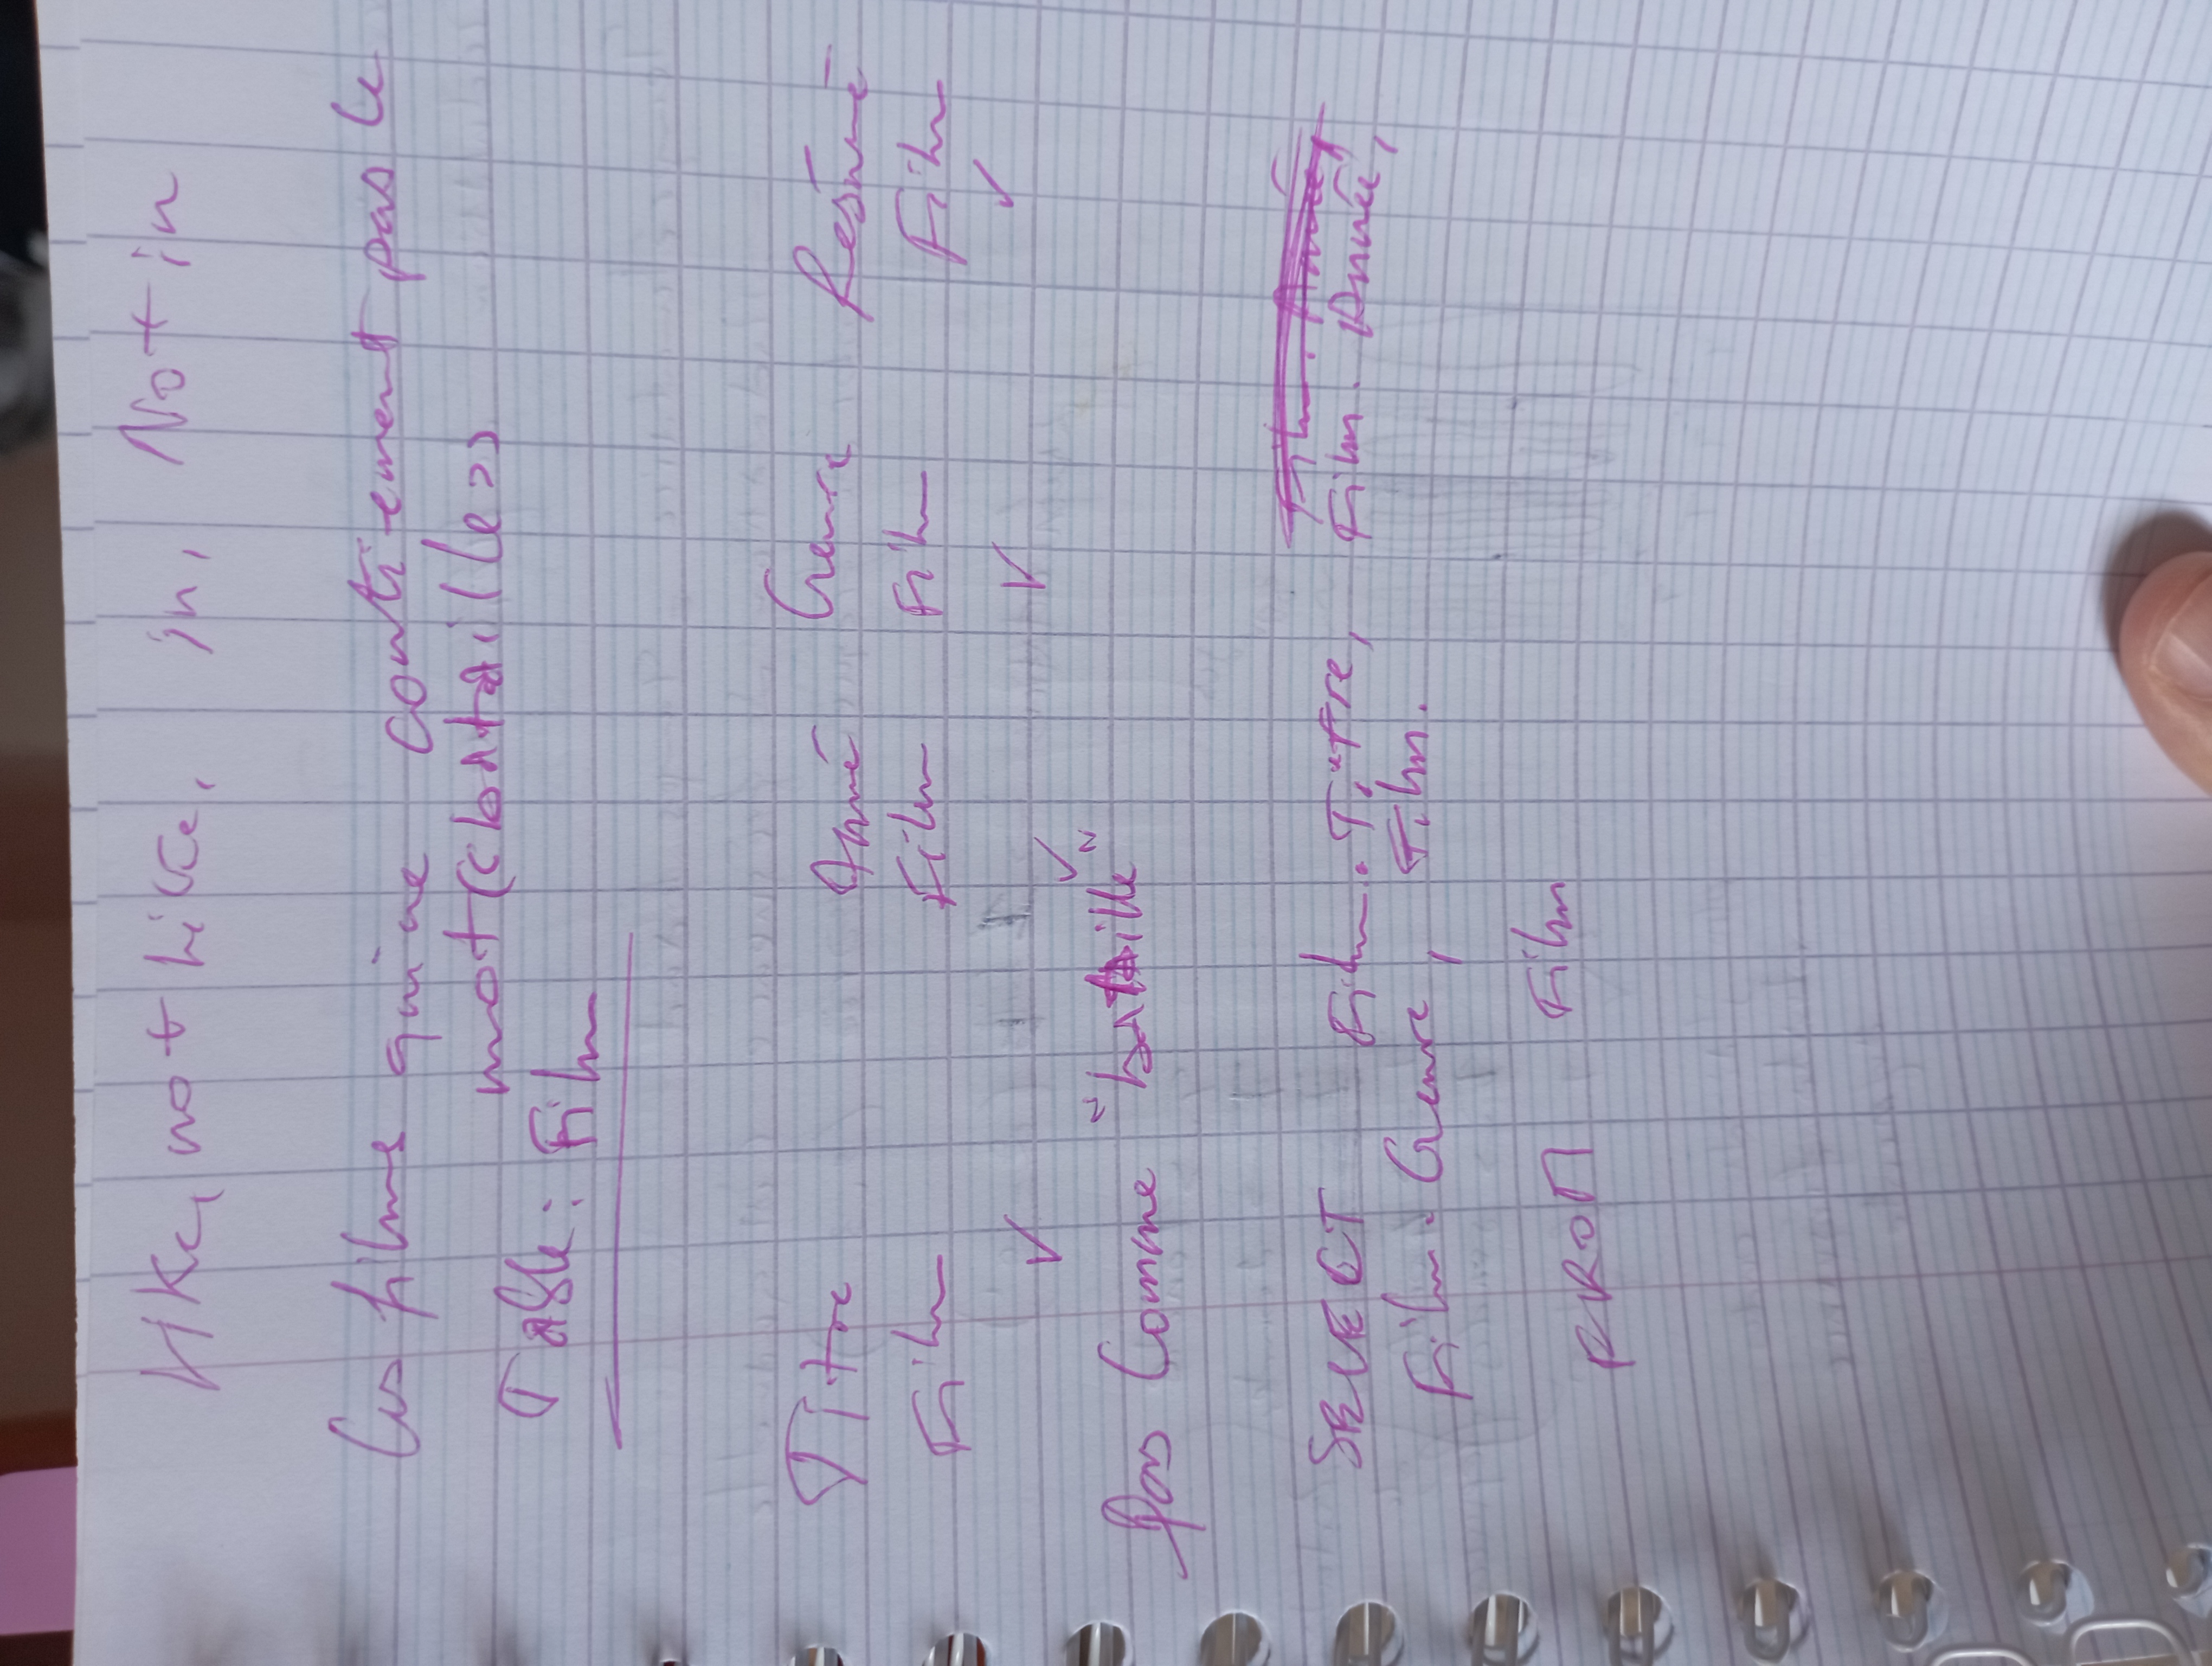 like, not Like, in, Not in
Les films qui ne contiennent pas le
mot << bataille >>
Table : Film
Titre Année Genre Résumé
Film Film Film Film
✓ ✓ ✓ ✓
Pas Comme "bataille"
SELECT Film.Titre, Film.Année,
Film.Genre, Film.
FROM Film